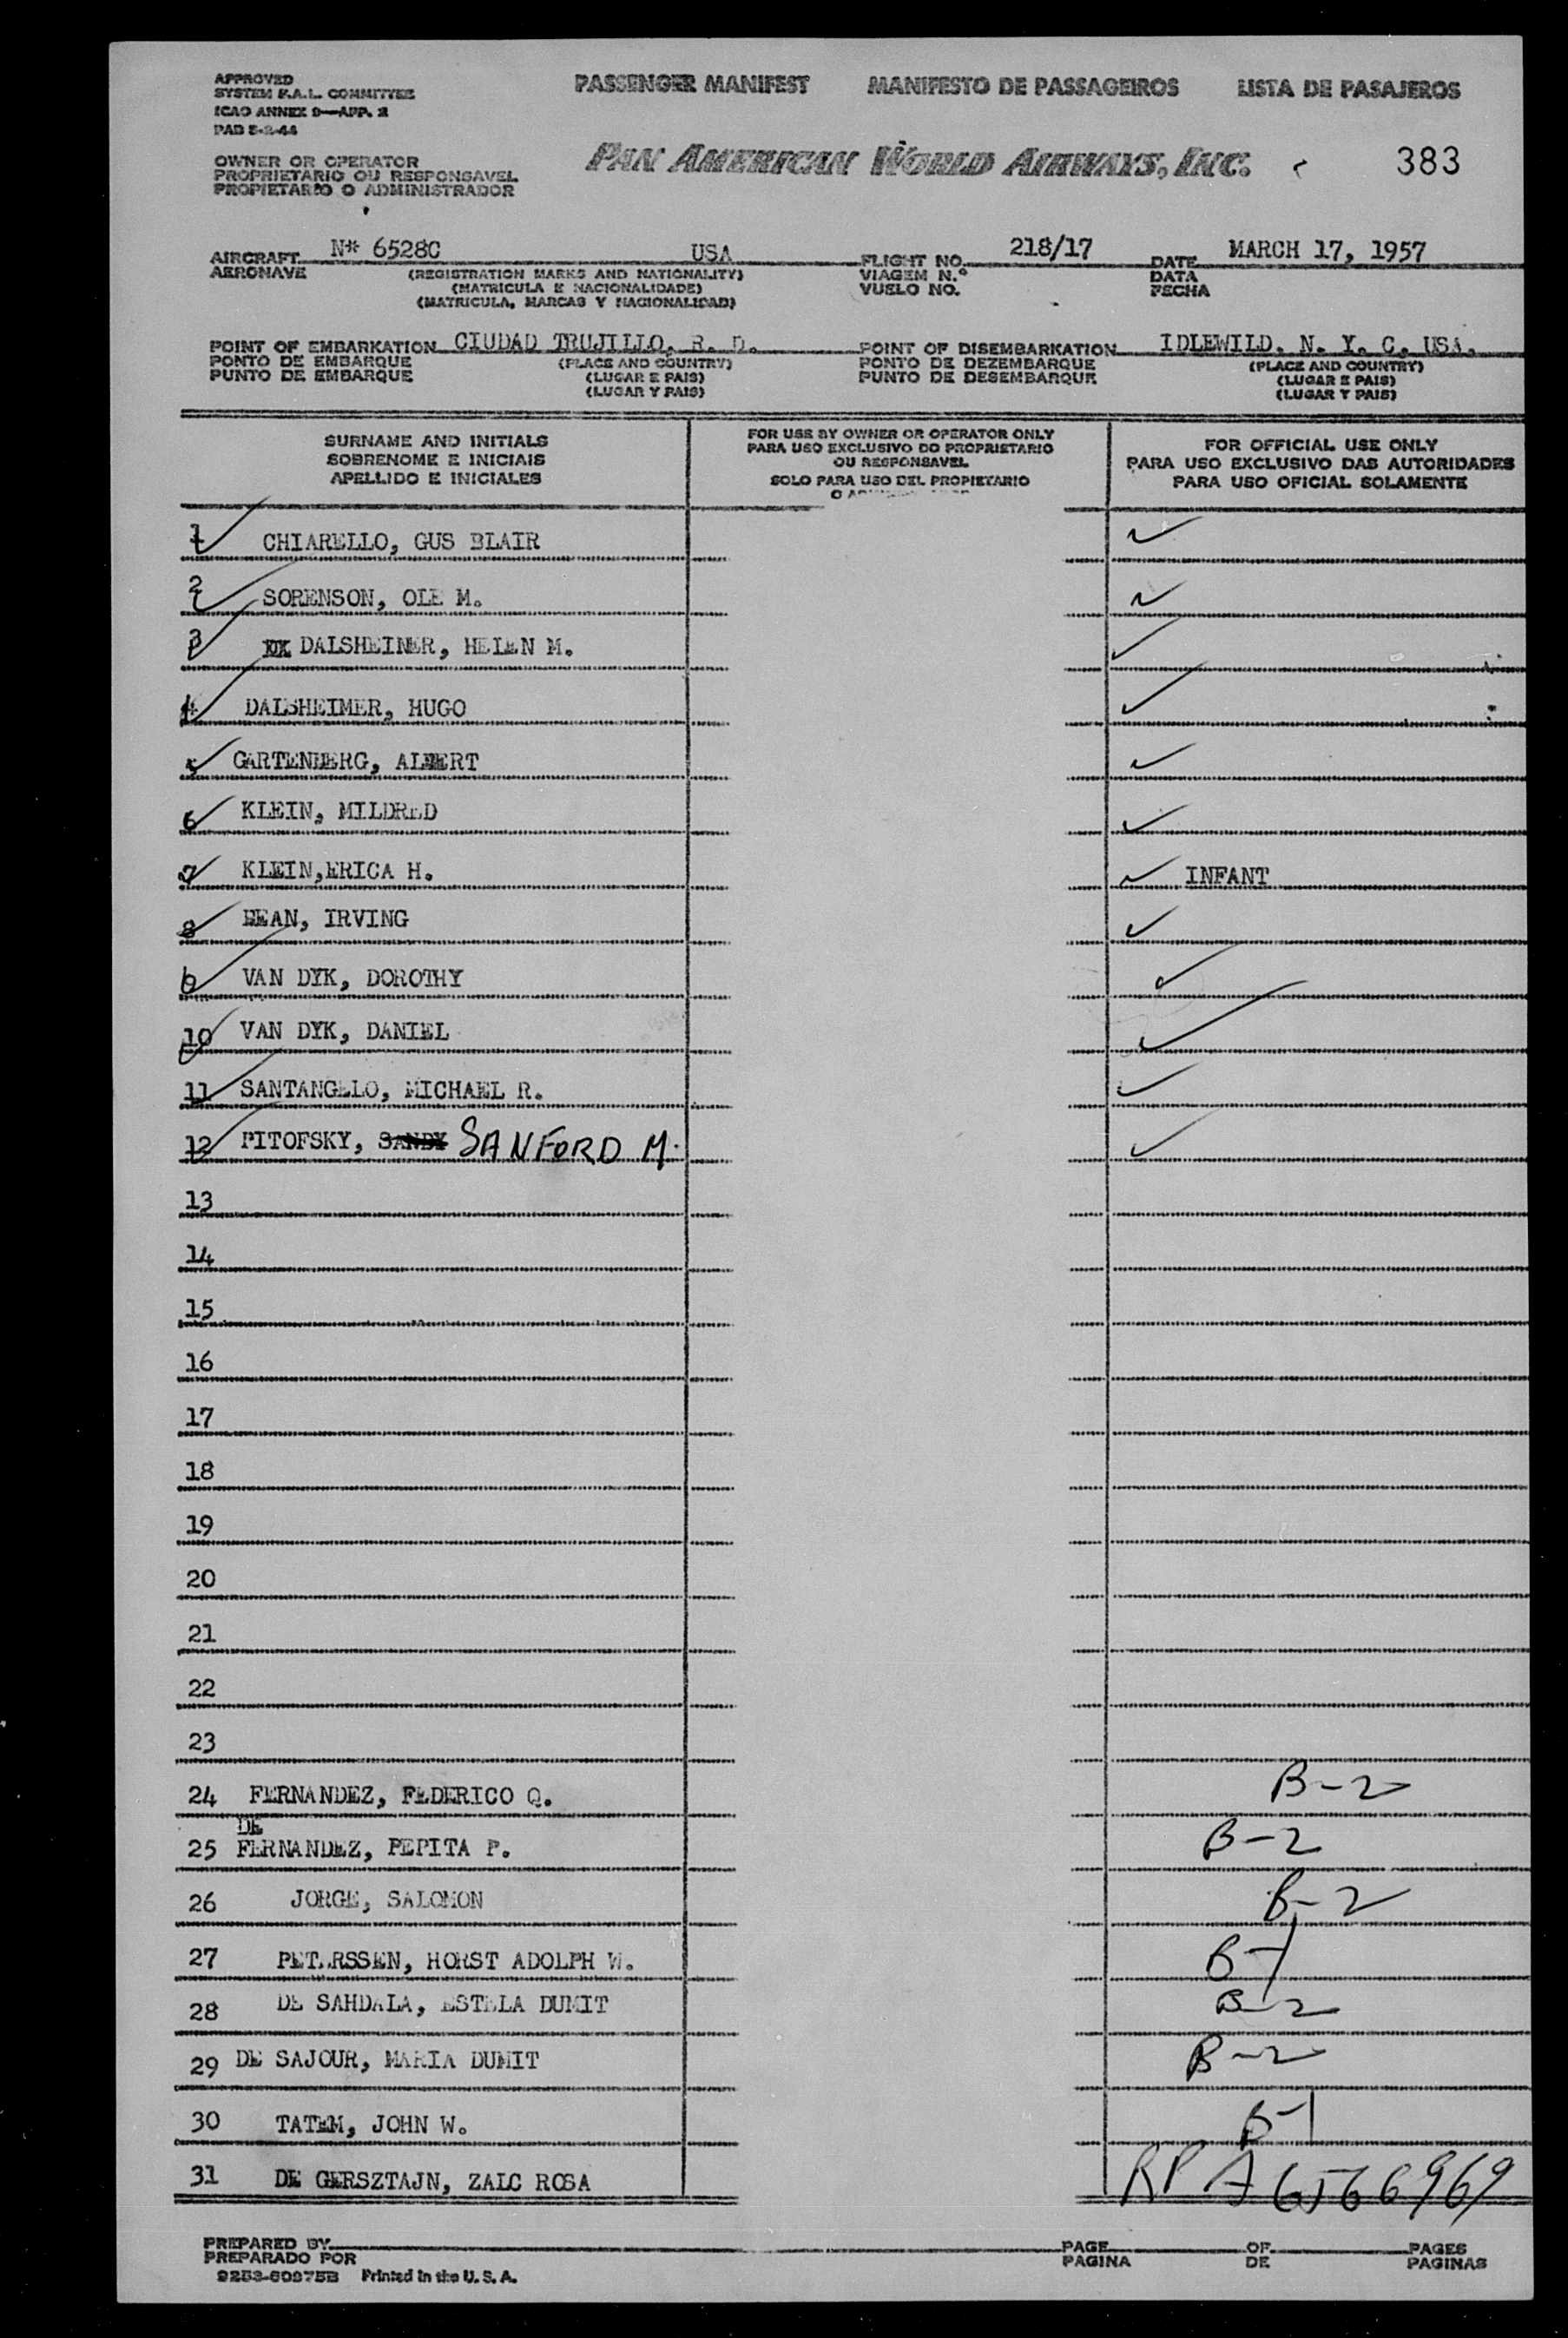 APPROVED
SYSTEM F.A.L. COMMITTEE
ICAO ANNEX 9—APP. 2
PAD 5-2-44
PASSENGER MANIFEST MANIFESTO DE PASSAGEIROS LISTA DE PASAJEROS
OWNER OR OPERATOR
PROPRIETARIO OU RESPONSAVEL
PROPIETARIO O ADMINISTRADOR
PAN AMERICAN WORLD AIRWAYS, INC. 383
AIRCRAFT N* 6528C USA FLIGHT NO. 218/17 DATE MARCH 17, 1957
AERONAVE (REGISTRATION MARKS AND NATIONALITY) VIAGEM N.º DATA
(MATRICULA E NACIONALIDADE) VUELO NO. FECHA
(MATRICULA, MARCAS Y NACIONALIDAD)
POINT OF EMBARKATION CIUDAD TRUJILLO, R. D. POINT OF DISEMBARKATION IDLEWILD, N. Y. C. USA.
PONTO DE EMBARQUE (PLACE AND COUNTRY) PONTO DE DEZEMBARQUE (PLACE AND COUNTRY)
PUNTO DE EMBARQUE (LUGAR E PAIS) PUNTO DE DESEMBARQUE (LUGAR E PAIS)
(LUGAR Y PAIS) (LUGAR Y PAIS)
SURNAME AND INITIALS
SOBRENOME E INICIAIS
APELLIDO E INICIALES
FOR USE BY OWNER OR OPERATOR ONLY
PARA USO EXCLUSIVO DO PROPRIETARIO
OU RESPONSAVEL
SOLO PARA USO DEL PROPIETARIO
O
FOR OFFICIAL USE ONLY
PARA USO EXCLUSIVO DAS AUTORIDADES
PARA USO OFICIAL SOLAMENTE
1 CHIARELLO, GUS BLAIR
2 SORENSON, OLE M.
3 DALSHEINER, HELEN M.
4 DALSHEIMER, HUGO
5 GARTENBERG, ALBERT
6 KLEIN, MILDRED
7 KLEIN,ERICA H. INFANT
8 BEAN, IRVING
9 VAN DYK, DOROTHY
10 VAN DYK, DANIEL
11 SANTANGELO, MICHAEL R.
12 PITOFSKY, SANDY SANFORD M.
13
14
15
16
17
18
19
20
21
22
23
24 FERNANDEZ, FEDERICO Q. B-2
DE
25 FERNANDEZ, PEPITA P. B-2
26 JORGE, SALOMON B-2
27 PETERSSEN, HORST ADOLPH W. B-1
28 DE SAHDALA, ESTELA DUMIT B-2
29 DE SAJOUR, MARIA DUMIT B-2
30 TATEM, JOHN W. B-1
31 DE GERSZTAJN, ZALC ROSA RP A6566969
PREPARED BY PAGE OF PAGES
PREPARADO POR PAGINA DE PAGINAS
Printed in the U. S. A.